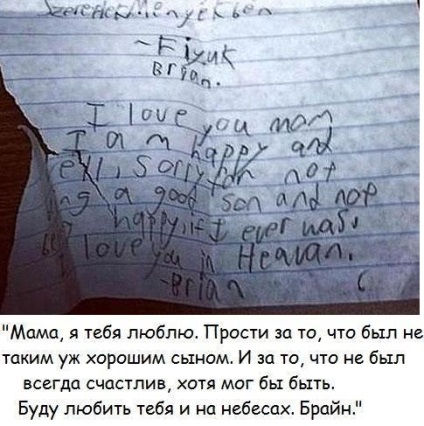 ~Fiyuk
Brian.
I love you mom
I am happy and
ell, sorry for not
ng a good son and not
happy, if I ever was.
love you in Heavan.
-Brian
"Мама, я тебя люблю. Прости за то, что был не
таким уж хорошим сыном. И за то, что не был
всегда счастлив, хотя мог бы быть.
Буду любить тебя и на небесах. Брайн."